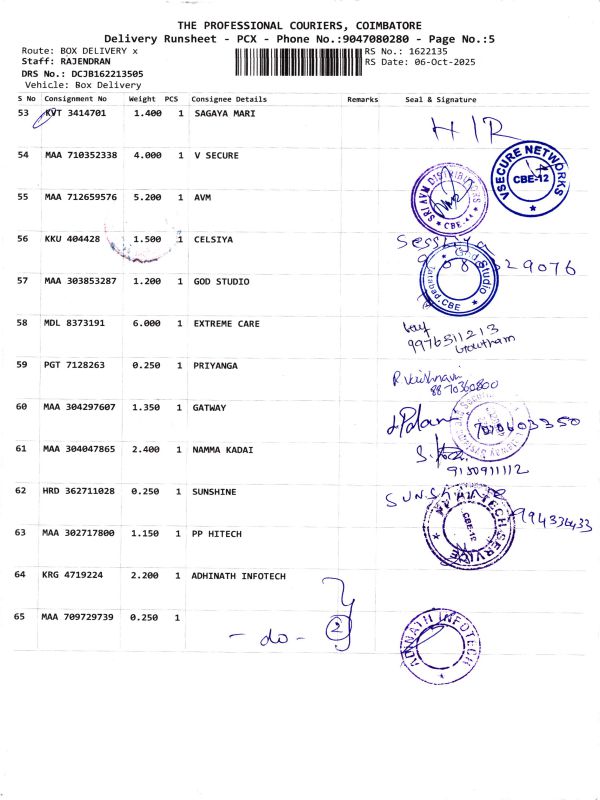 THE PROFESSIONAL COURIERS, COIMBATORE
Delivery Runsheet - PCX - Phone No.:9047080280 - Page No.:5
Route: BOX DELIVERY x
RS No.: 1622135
Staff: RAJENDRAN
RS Date: 06-Oct-2025
DRS No.: DCJB162213505
Vehicle: Box Delivery
S No Consignment No Weight PCS Consignee Details Remarks Seal & Signature
53 KVT 3414701 1.400 1 SAGAYA MARI
HIR
54 MAA 710352338 4.000 1 V SECURE
VSECURE NETWORKS
CBE-12
55 MAA 712659576 5.200 1 AVM
SRI AVM DISTRIBUTORS
CBE-44
56 KKU 404428 1.500 1 CELSIYA
57 MAA 303853287 1.200 1 GOD STUDIO
God Studio
CBE
58 MDL 8373191 6.000 1 EXTREME CARE
9976511213
Gowtham
59 PGT 7128263 0.250 1 PRIYANGA
8870360800
60 MAA 304297607 1.350 1 GATWAY
7070603350
61 MAA 304047865 2.400 1 NAMMA KADAI
9150911112
62 HRD 362711028 0.250 1 SUNSHINE
SUNShine
63 MAA 302717800 1.150 1 PP HITECH
HITECH SERVICE
CBE-12
64 KRG 4719224 2.200 1 ADHINATH INFOTECH
65 MAA 709729739 0.250 1
- do - 2
ADINNATH INFOTECH